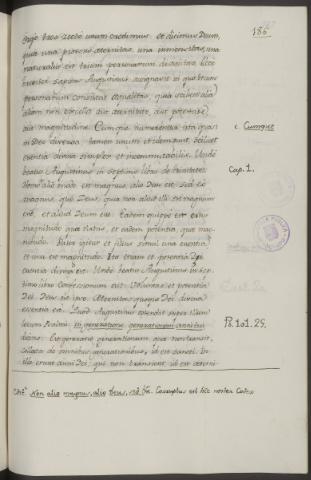 186
ergo bono recte unum credimus et dicimus Deum,
quia una prorsus aeternitas, una immensitas, una
naturaliter est trium personarum divinitas. Hoc
breviter sapiens Augustinus assignavit in quo trium
personarum consistat aequalitas, quia scilicet alia
aliam non excellit aut aeternitate, aut potestate
aut magnitudine. Cumque numerentur ista quasi
in Deo diversa tamen unum et idem sunt, scilicet
essentia divina simplex et incommutabilis. Unde
beatus Augustinus in septimo libro de trinitate.
Non alio modo est magnus, alio Deus est. Sed eo
magnus, quo Deus, quia non aliud illi est magnum
esse, et aliud Deum esse. Eadem quippe est eius
magnitudo quae virtus, et eadem potentia, quae mag-
nitudo. Pater igitur et filius simul una essentia
et una est magnitudo. Ita etiam et potentia Dei
essentia divina est. Unde beatus Augustinus in sep-
timo libro Confessionum est. Voluntas et potentia
Dei Deus ipse est. Aeternitas quoque Dei divina
essentia est. Quod Augustinus ostendit super illum
locum Psalmi. In generatione generationum anni tui
dicens. Est generatio generationum quae non transit,
collecta de omnibus generationibus, id est sancti. In
illis erunt anni Dei, qui non transeunt, id est aeterni-
c. Cumque
Cap. 1.
Ps. 101. 25.
Non alio magnus, alio Deus, sed &c. Exemplus est hic noster Codex